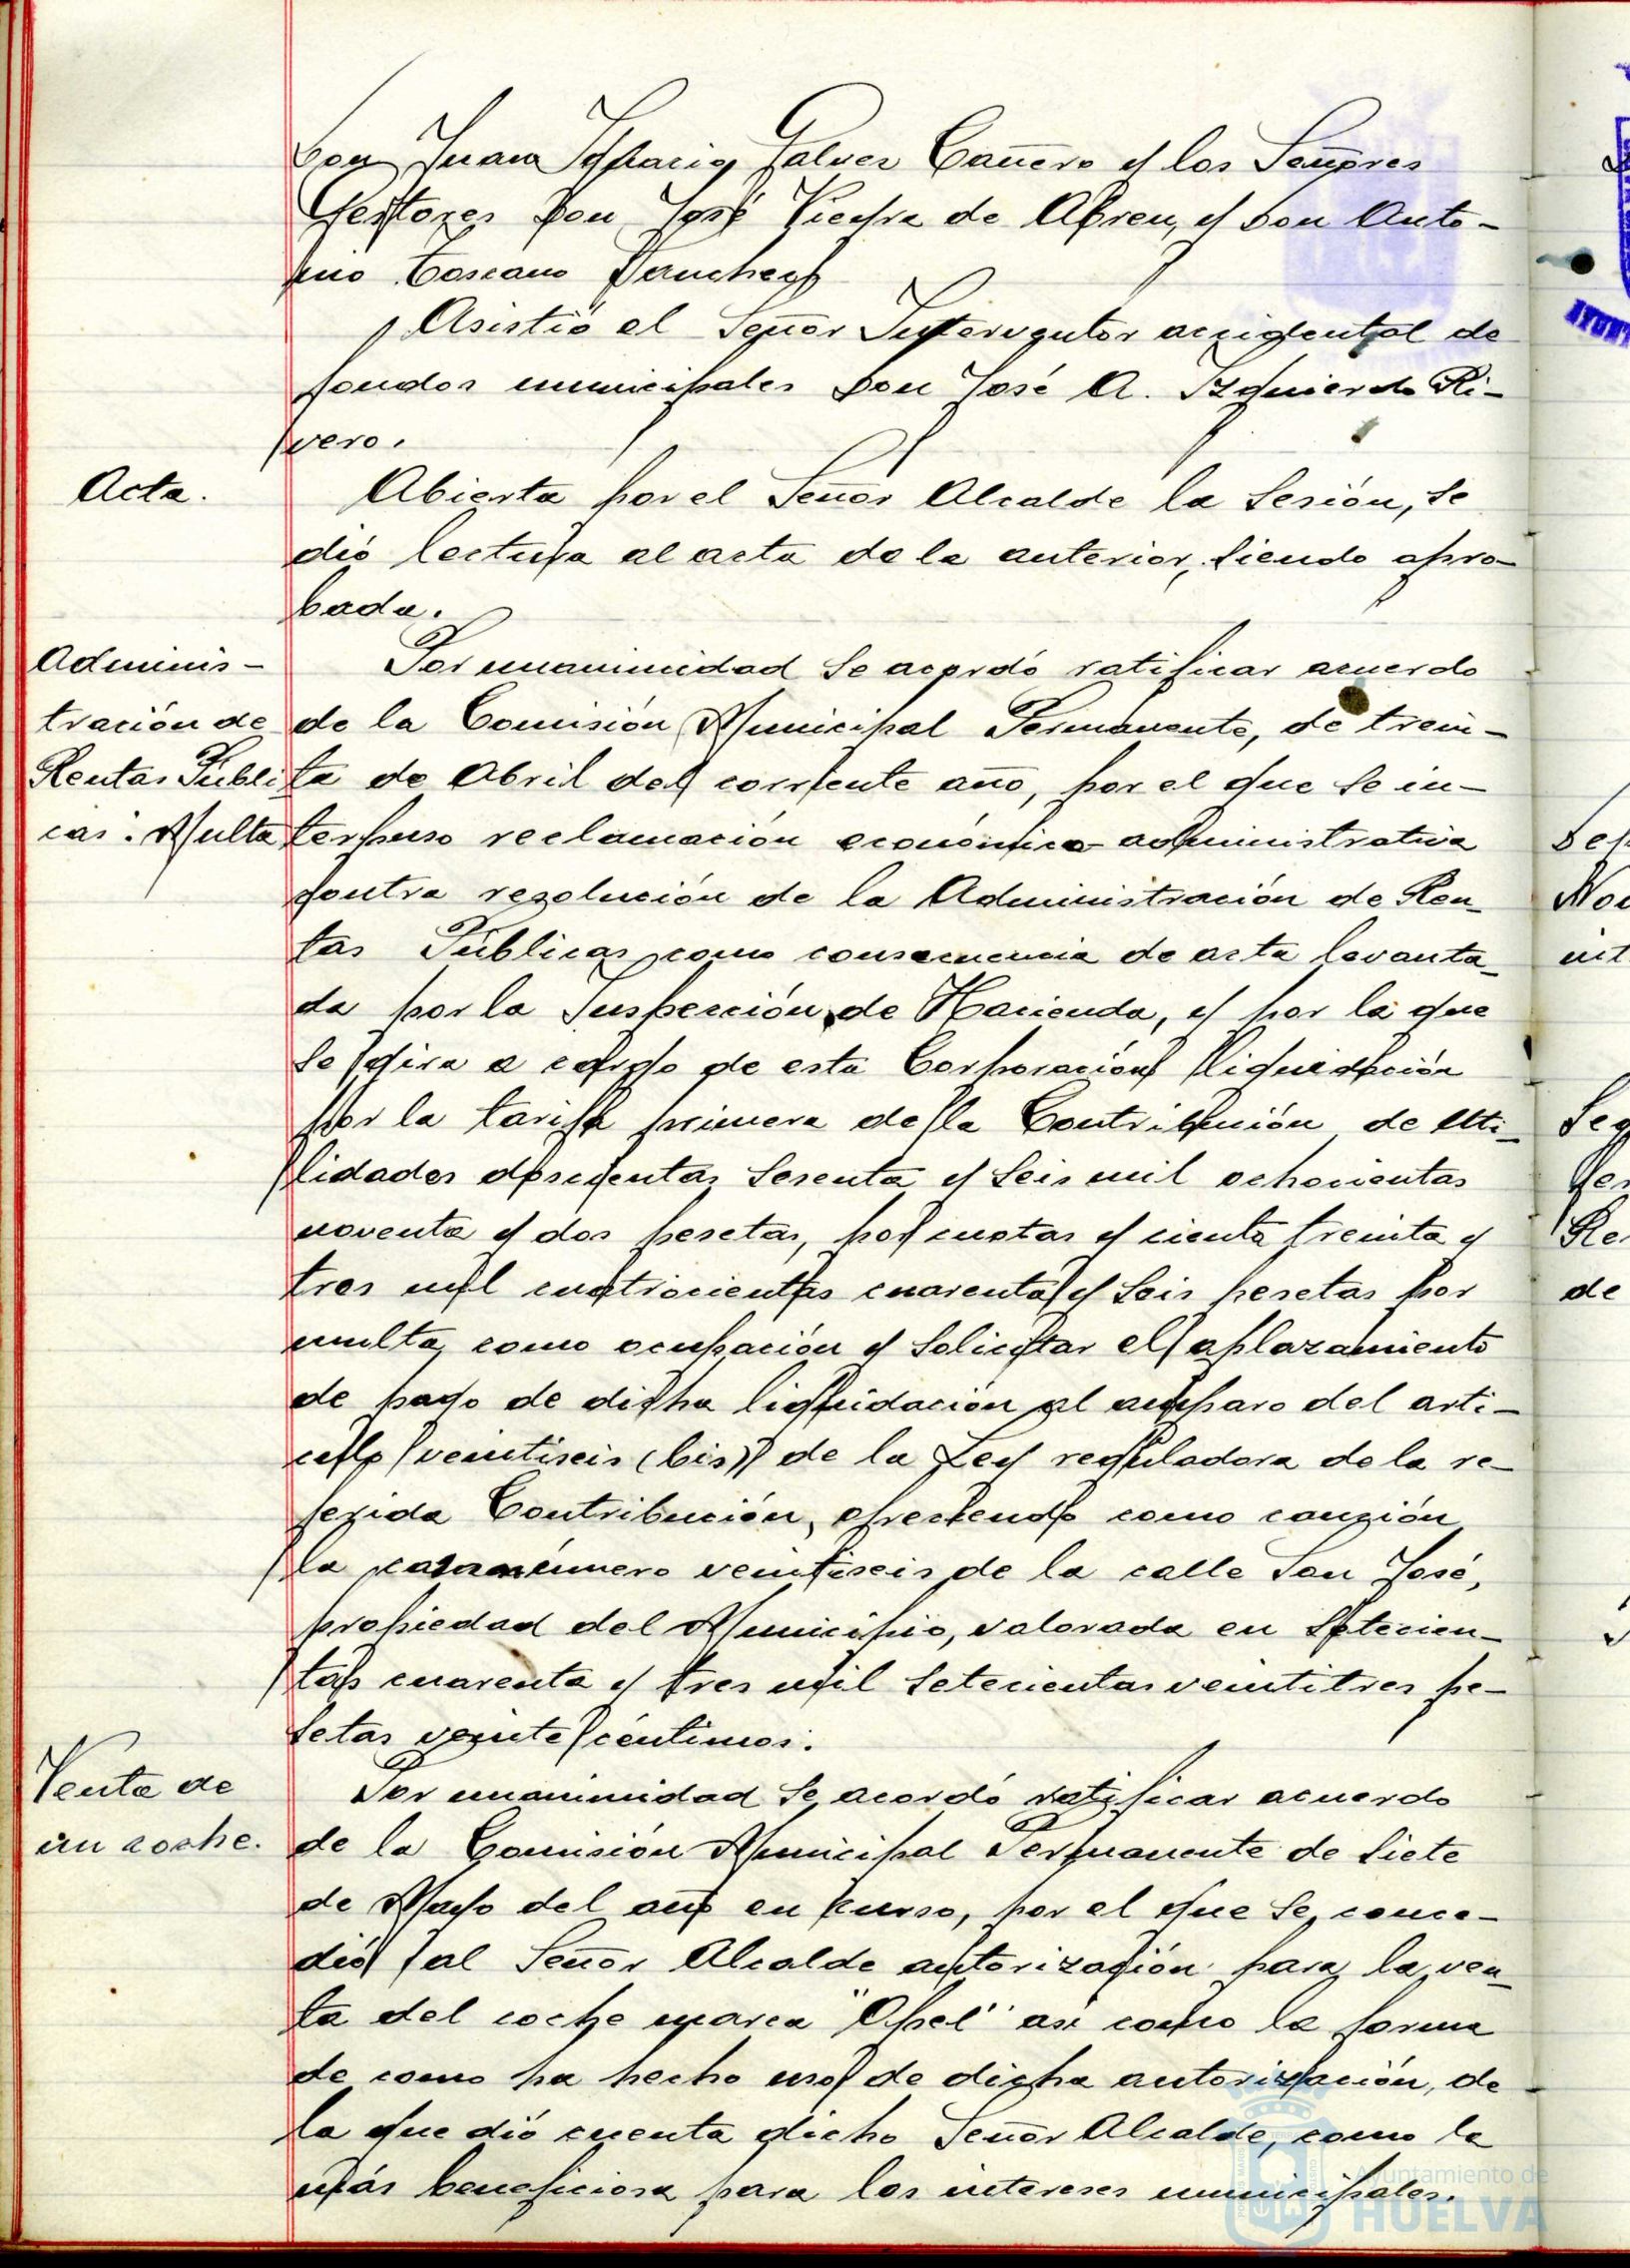 Don Juan Ignacio Galvez Cañero y los Señores
Gestores Don José Vieyra de Abreu, y Don Anto-
nio Toscano Sanchez
Asistió el Señor Interventor accidental de
fondos municipales Don José A. Izquierdo Ri-
vero.
Acta.
Abierta por el Señor Alcalde la Sesión, se
dió lectura al acta de la anterior, siendo apro-
bada.
Adminis-
tración de
Rentas Públi
cas. Multa
Por unanimidad se acordó ratificar acuerdo
de la Comisión Municipal Permanente, de trein-
ta de Abril del corriente año, por el que se in-
terpuso reclamación económico-administrativa
contra resolución de la Administración de Ren-
tas Públicas como consecuencia de acta levanta-
da por la Inspección de Hacienda, y por la que
se gira a cargo de esta Corporación liquidación
por la tarifa primera de la Contribución de Uti-
lidades doscientas sesenta y seis mil ochocientas
noventa y dos pesetas, por cuotas y ciento treinta y
tres mil cuatrocientas cuarenta y seis pesetas por
multa, como ocupación y solicitar el aplazamiento
de pago de dicha liquidación al amparo del artí-
culo veintiseis (bis) de la Ley reguladora de la re-
ferida Contribución, ofreciendo como caución
la casa número veintiseis de la calle San José,
propiedad del Municipio, valorada en setecien-
tas cuarenta y tres mil setecientas veintitres pe-
setas veinte céntimos.
Venta de
un coche.
Por unanimidad se acordó ratificar acuerdo
de la Comisión Municipal Permanente de siete
de Mayo del año en curso, por el que se conce-
dió al Señor Alcalde autorización para la ven-
ta del coche marca "Opel" así como la forma
de como ha hecho uso de dicha autorización, de
la que dió cuenta dicho Señor Alcalde, como la
más beneficiosa para los intereses municipales.
Ayuntamiento de
HUELVA